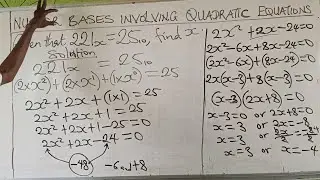 NUMBER BASES INVOLVING QUADRATIC EQUATIONS
en that 221ₓ = 25₁₀, find x
Solution
221ₓ = 25₁₀
(2×x²)+(2×x¹)+(1×x⁰) = 25
2x² + 2x + (1×1) = 25
2x² + 2x + 1 = 25
2x² + 2x + 1 - 25 = 0
2x² + 2x - 24 = 0
-48
-6 and +8
2x² + 2x - 24 = 0
2x² - 6x + 8x - 24 = 0
(2x² - 6x) + (8x - 24) = 0
2x(x-3) + 8(x-3) = 0
(x-3)(2x+8) = 0
x-3=0 or 2x+8=0
x=3 or 2x=-8
x=3
x=3 or x=-4